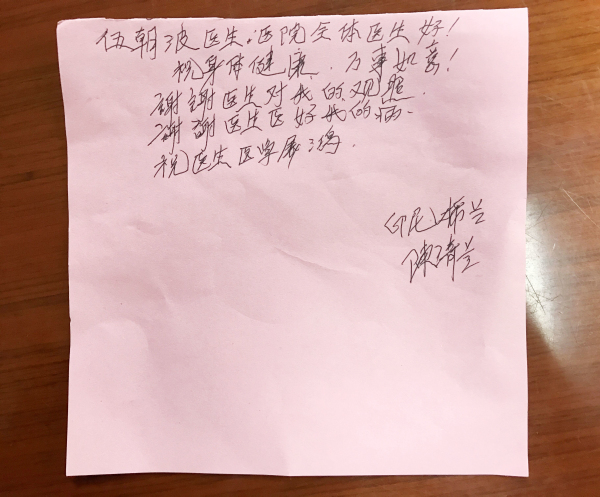 伍朝波医生.医院全体医生好!
祝身体健康.万事如意!
谢谢医生对我的观照.
谢谢医生医好我的病.
祝医生医学展鸿.
(印尼)棉兰
陳琦兰